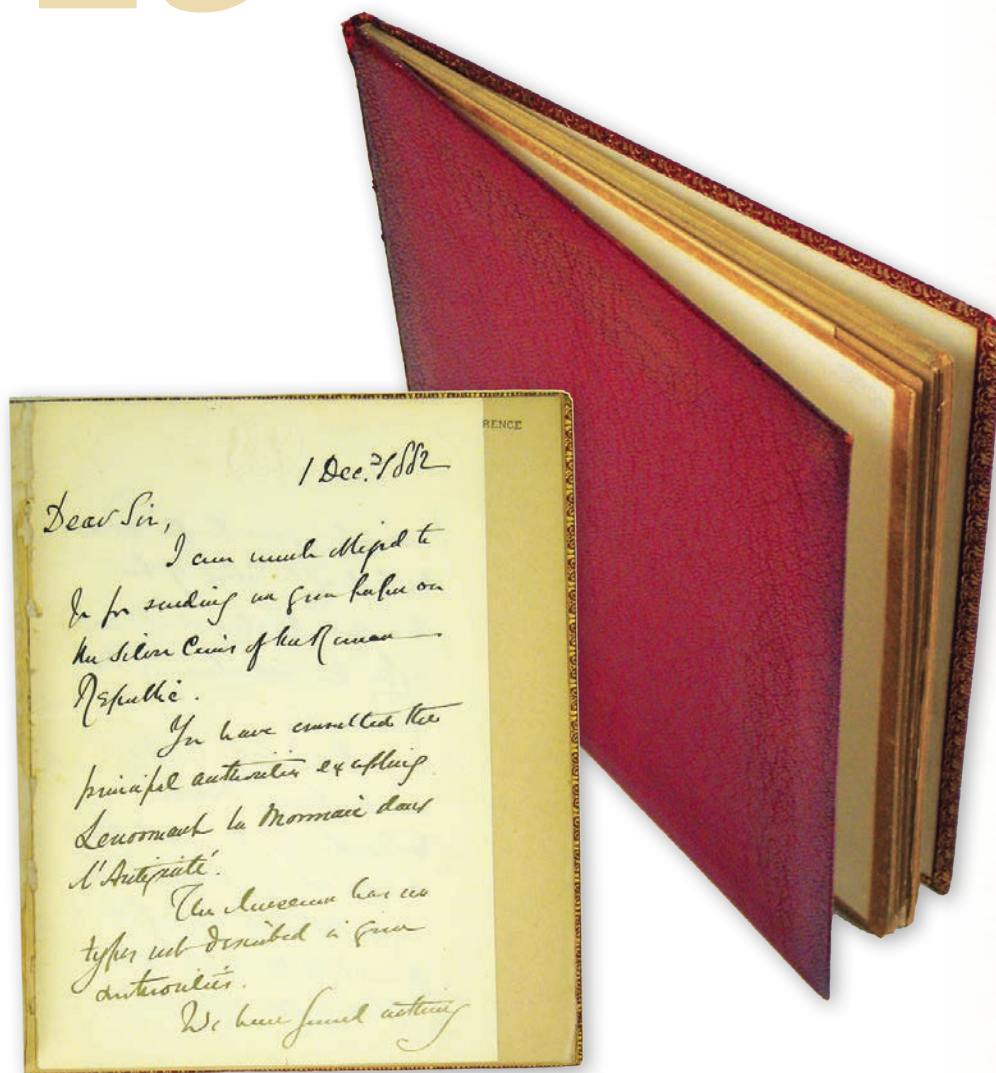 RENCE
1 Dec. 1882
Dear Sir,
I am much obliged to
for sending me your paper on
the Silver Coins of the Roman
Republic.
You have consulted the
principal authorities excepting
Lenormant la Monnaie dans
l'Antiquité.
The Museum has no
types not described in your
authorities.
We have found nothing